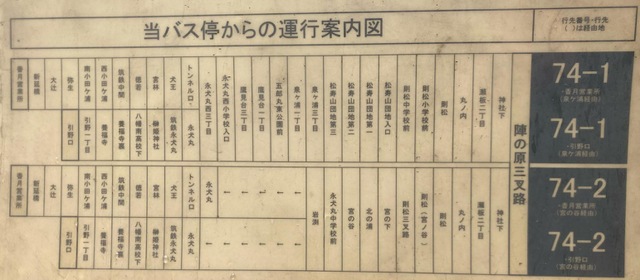 当バス停からの運行案内図
行先番号・行先
( )は経由地
74-1
-香月営業所
(泉ケ浦経由)
74-1
-引野口
(泉ケ浦経由)
74-2
-香月営業所
(宮の谷経由)
74-2
-引野口
(宮の谷経由)
陣の原三叉路
神社下
瀬板二丁目
丸ノ内
則松
則松小学校前
則松中学校前
松寿山団地入口
松寿山団地第一
松寿山団地第二
松寿山団地第三
泉ヶ浦三丁目
泉ヶ浦一丁目
五郎丸東公園前
鷹見台一丁目
鷹見台三丁目
永犬丸西小学校入口
永犬丸西三丁目
トンネル口
犬王
宮林
徳若
筑鉄中間
西小田ケ浦
南小田ケ浦
弥生
大辻
新延橋
香月営業所
筑鉄永犬丸
榊姫神社
八幡南高校下
養福寺裏
養福寺
引野一丁目
引野口
神社下
瀬板二丁目
丸ノ内
則松
則松(宮ノ谷)
則松三叉路
宮の下
北の浦
宮の谷
永犬丸中学校前
岩渕
←
←
←
←
←
永犬丸
トンネル口
犬王
宮林
徳若
筑鉄中間
西小田ケ浦
南小田ケ浦
弥生
大辻
新延橋
香月営業所
←
←
←
←
←
永犬丸
筑鉄永犬丸
榊姫神社
八幡南高校下
養福寺裏
養福寺
引野一丁目
引野口